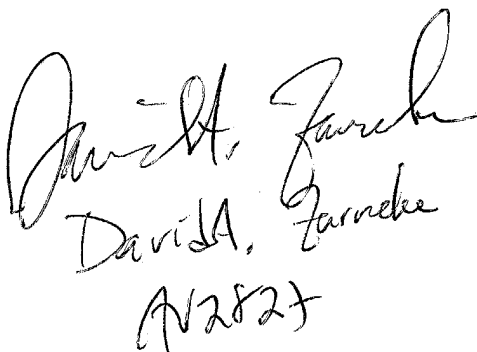 David A. Farneke
David A. Farneke
AV2827